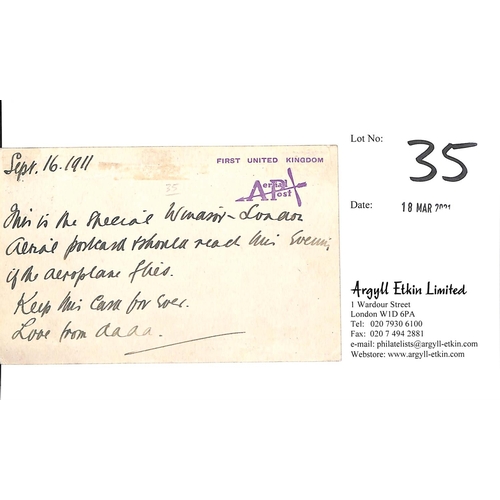 Sept. 16. 1911
FIRST UNITED KINGDOM
Aerial Post
35
This is the special Windsor-London
Aerial postcard & should reach this Evening
if the aeroplane flies.
Keep this Card for Ever.
Love from dada.
Lot No:
35
Date:
18 MAR 2021
Argyll Etkin Limited
1 Wardour Street
London W1D 6PA
Tel: 020 7930 6100
Fax: 020 7 494 2881
e-mail: philatelists@argyll-etkin.com
Webstore: www.argyll-etkin.com